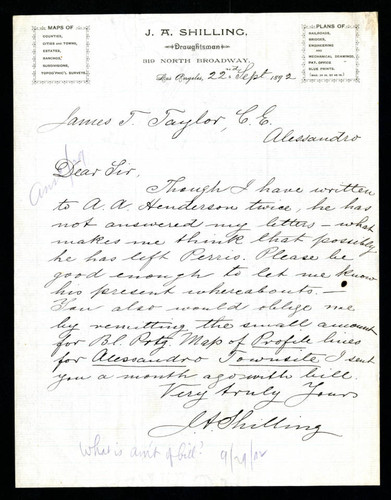 MAPS OF
COUNTIES,
CITIES AND TOWNS,
ESTATES,
RANCHOS,
SUBDIVISIONS,
TOPOG'PHIC'L SURVEYS
J. A. SHILLING,
Draughtsman
319 NORTH BROADWAY.
PLANS OF
RAILROADS,
BRIDGES,
ENGINEERING
AND
MECHANICAL DRAWINGS,
PAT. OFFICE
BLUE PRINTS,
Los Angeles, 22nd Sept 1892
James T. Taylor, C. E.
Alessandro
Dear Sir,
Though I have written
to A. A. Henderson twice, he has
not answered my letters – what
makes me think that possibly
he has left Perris. Please be
good enough to let me know
his present whereabouts. –
You also would oblige me
by remitting the small amount
for Bl. Prtg Map of Profile lines
for Alessandro Townsite I sent
you a month ago with bill.
Very truly Yours
J A Shilling
What is am't of bill? 9/29/92